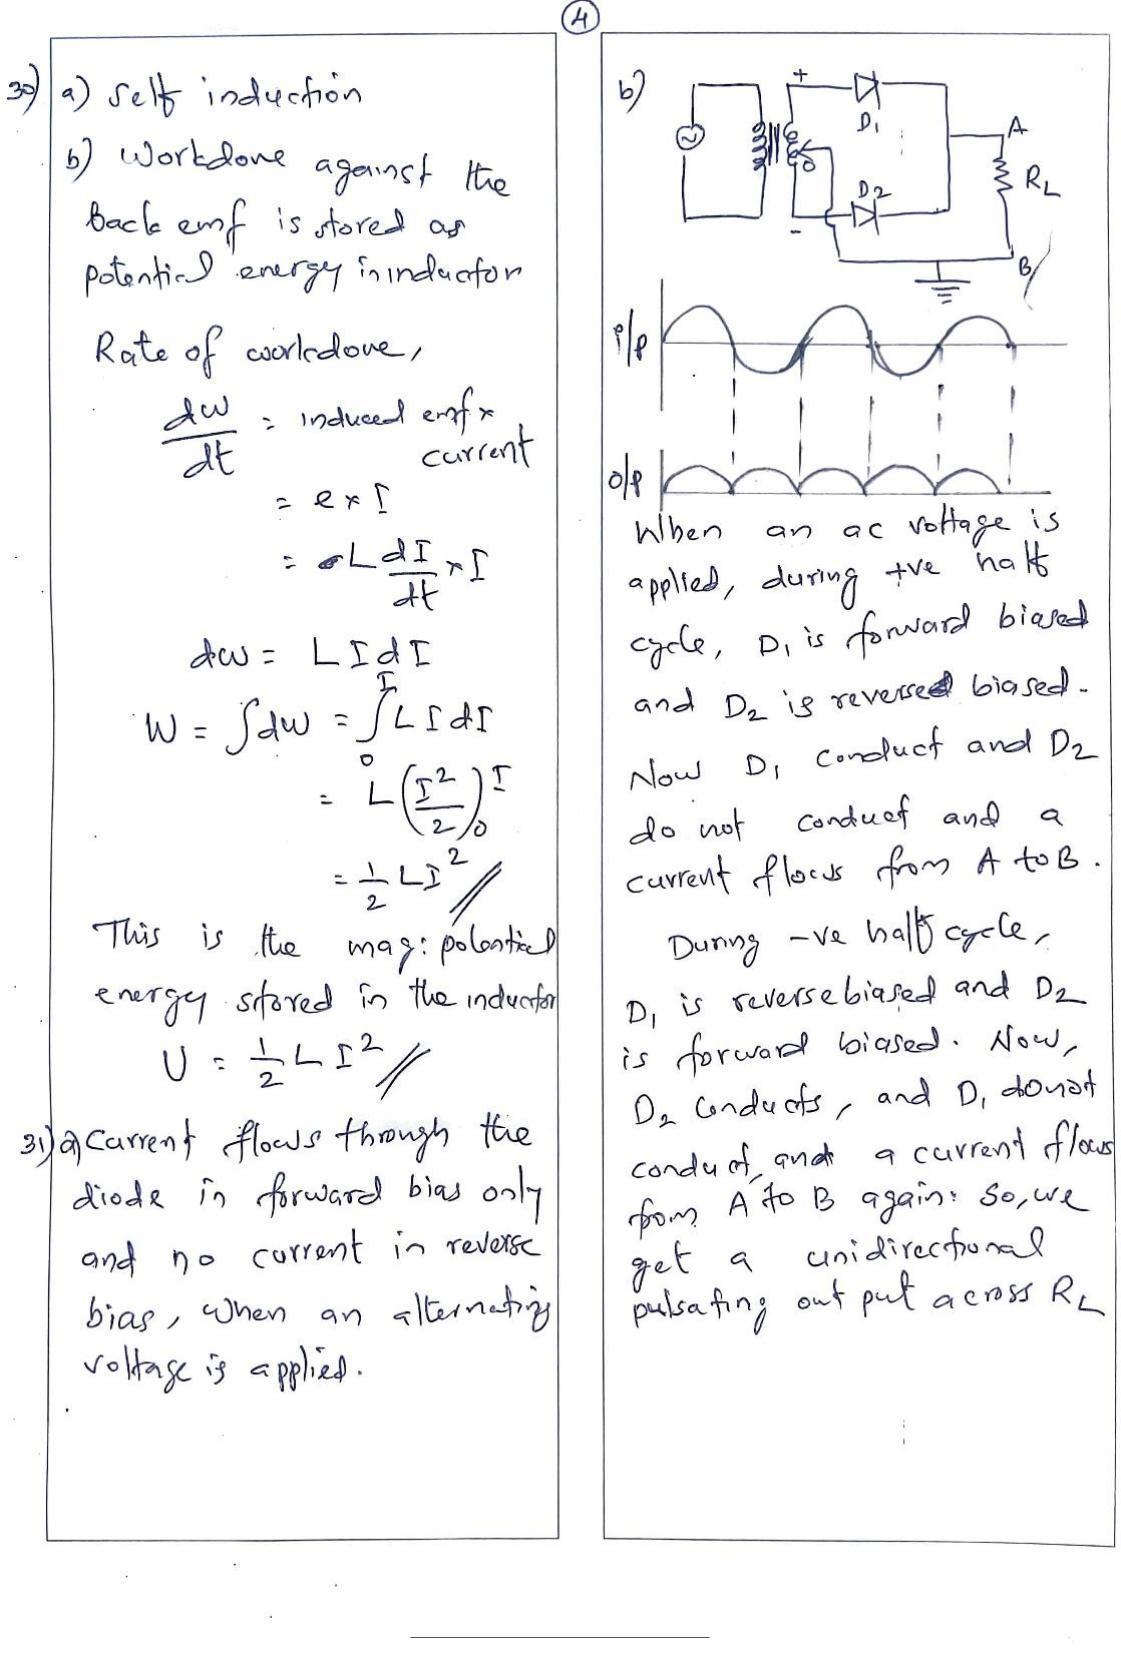 4
30) a) Self induction
b) Workdone against the
Back emf is stored as
potential energy in inductor
Rate of workdone,
dw/dt = induced emf x
current
= e x I
= L dI/dt x I
dw = L I dI
W = ∫dw = ∫₀ᴵ L I dI
= L (I²/2)₀ᴵ
= 1/2 LI² //
This is the mag: potential
energy stored in the inductor
U = 1/2 L I² //
31) a) Current flows through the
diode in forward bias only
and no current in reverse
bias, when an alternating
voltage is applied.
b)
+
D₁
A
RL
D2
-
B
i/p
o/p
When an ac voltage is
applied, during +ve half
cycle, D₁ is forward biased
and D2 is reversed biased.
Now D₁ conduct and D2
do not conduct and a
current flows from A to B.
During -ve half cycle,
D₁ is reverse biased and D2
is forward biased. Now,
D2 conducts, and D₁ do not
conduct, and a current flows
from A to B again: So, we
get a unidirectional
pulsating out put across RL